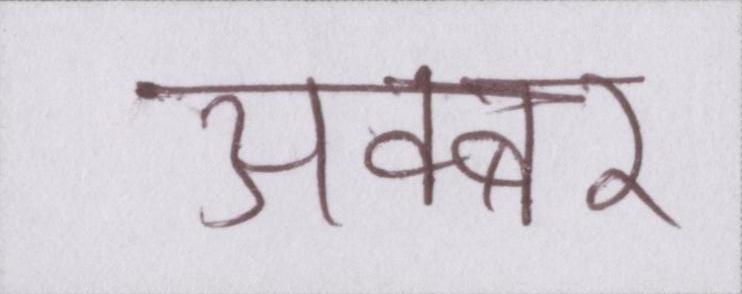 अक्बर